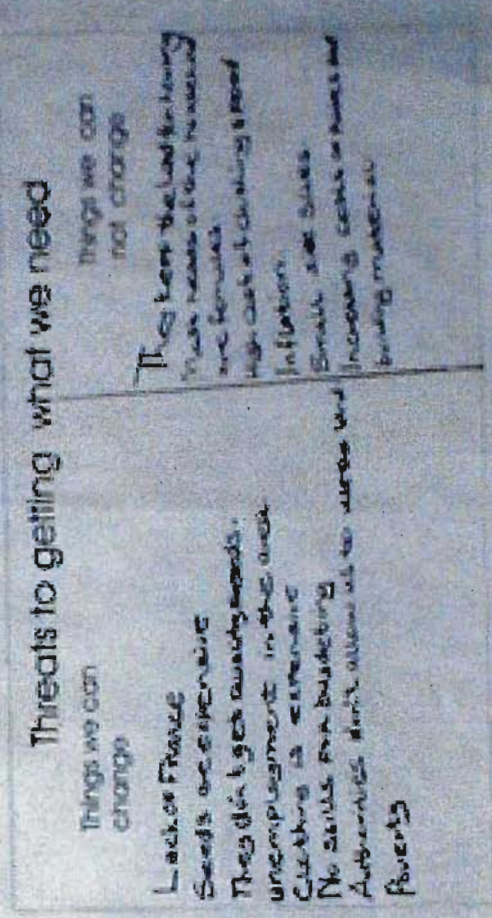 Threats to getting what we need
Things we can
change
Lack of Finance
Seeds are expensive
They don't get quality seeds.
unemployment in the area
Clothing is expensive
No skills for budgeting
Authorities don't allow us to land
Poverty
Things we can
not change
They keep the land for long
Most heads of the household
are females
High cost of clothing & food
Inflation.
Small sizes
Increasing costs of and
building material